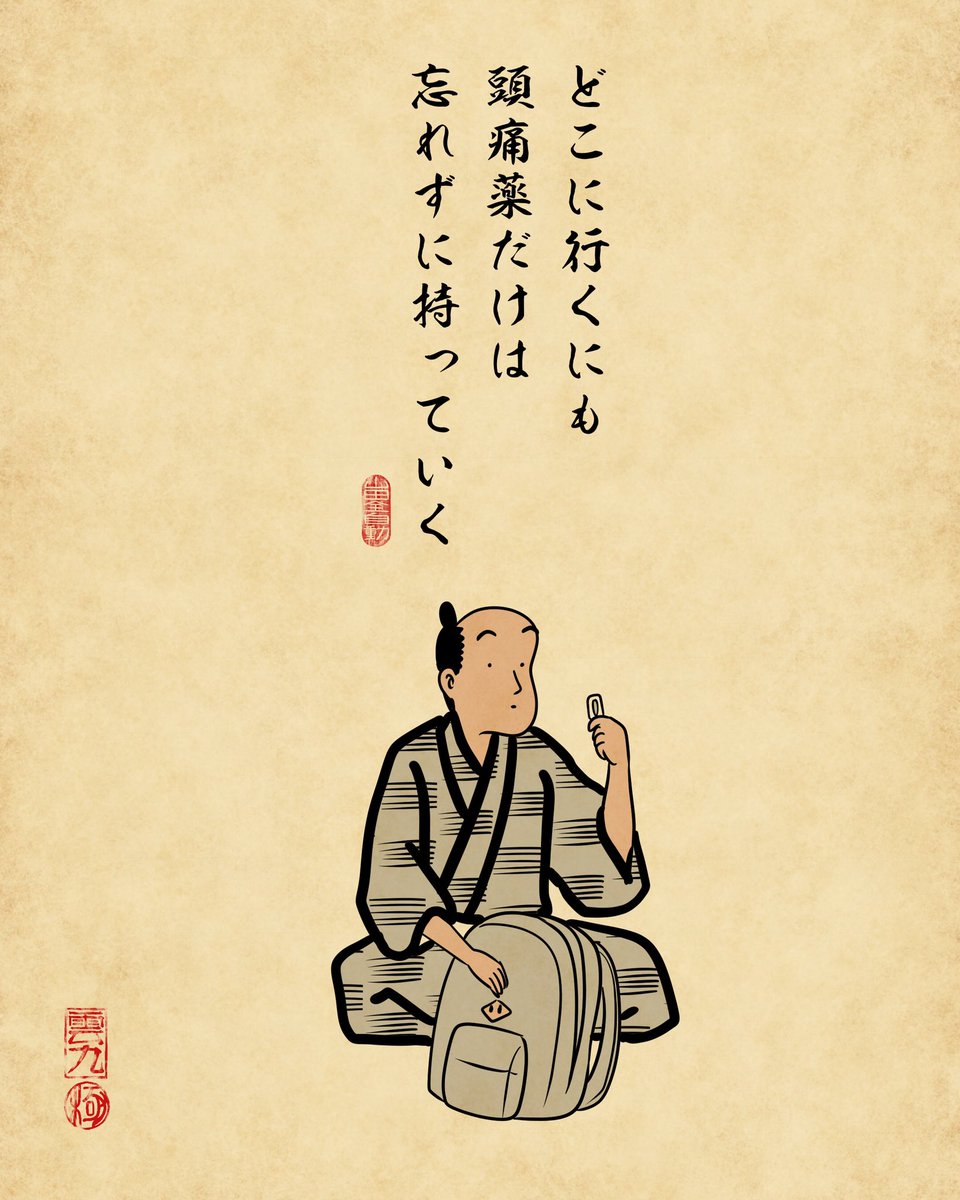 どこに行くにも
頭痛薬だけは
忘れずに持っていく